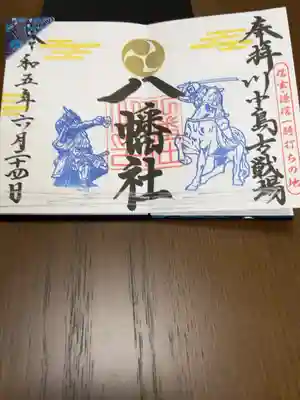 奉拝 川中島古戦場
信玄・謙信一騎打ちの地
八幡社
令和五年六月二十四日